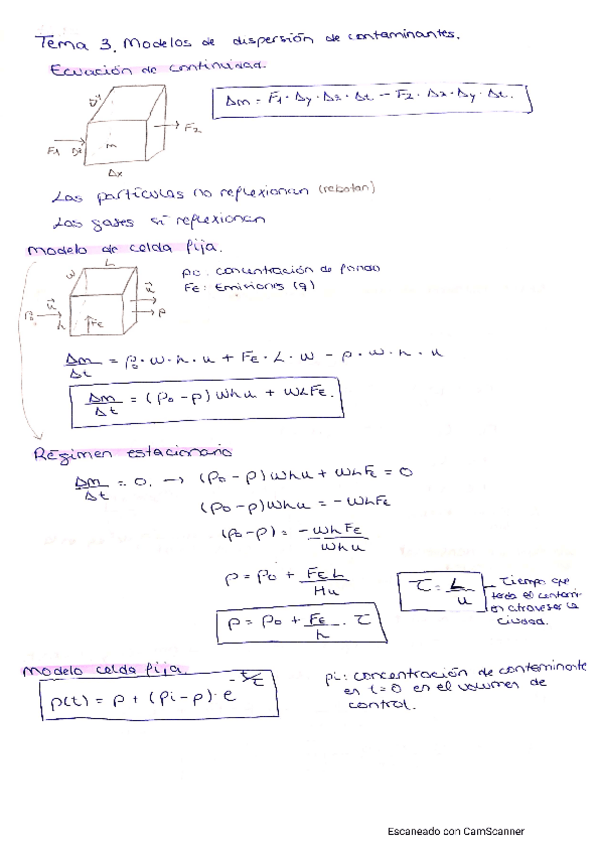 Tema 3. Modelos de dispersión de contaminantes.
Ecuación de continuidad.
Δm = F1 · Δy · Δz · Δt - F2 · Δz · Δy · Δt.
F1
m
F2
Δx
Las partículas no reflexionan (rebotan)
Los gases sí reflexionan
Modelo de celda fija.
L
w
ρ0: concentración de fondo
FE: Emisiones (q)
ρ0
u
h
FE
u
ρ
Δm/Δt = ρ0 · w · h · u + FE · L · w - ρ · w · h · u
Δm/Δt = (ρ0 - ρ) whu + wLFE.
Régimen estacionario
Δm/Δt = 0. → (ρ0 - ρ) whu + wLFE = 0
(ρ0 - ρ) whu = - wLFE
(ρ0 - ρ) = - wLFE / whu
ρ = ρ0 + FE L / Hu
τ = L/u
Tiempo que
tarda el contami-
en atravesar la
ciudad.
ρ = ρ0 + FE/h · τ
Modelo celda fija.
ρ(t) = ρ + (ρi - ρ) · e^(-t/τ)
ρi: concentración de contaminante
en t=0 en el volumen de
control.
Escaneado con CamScanner